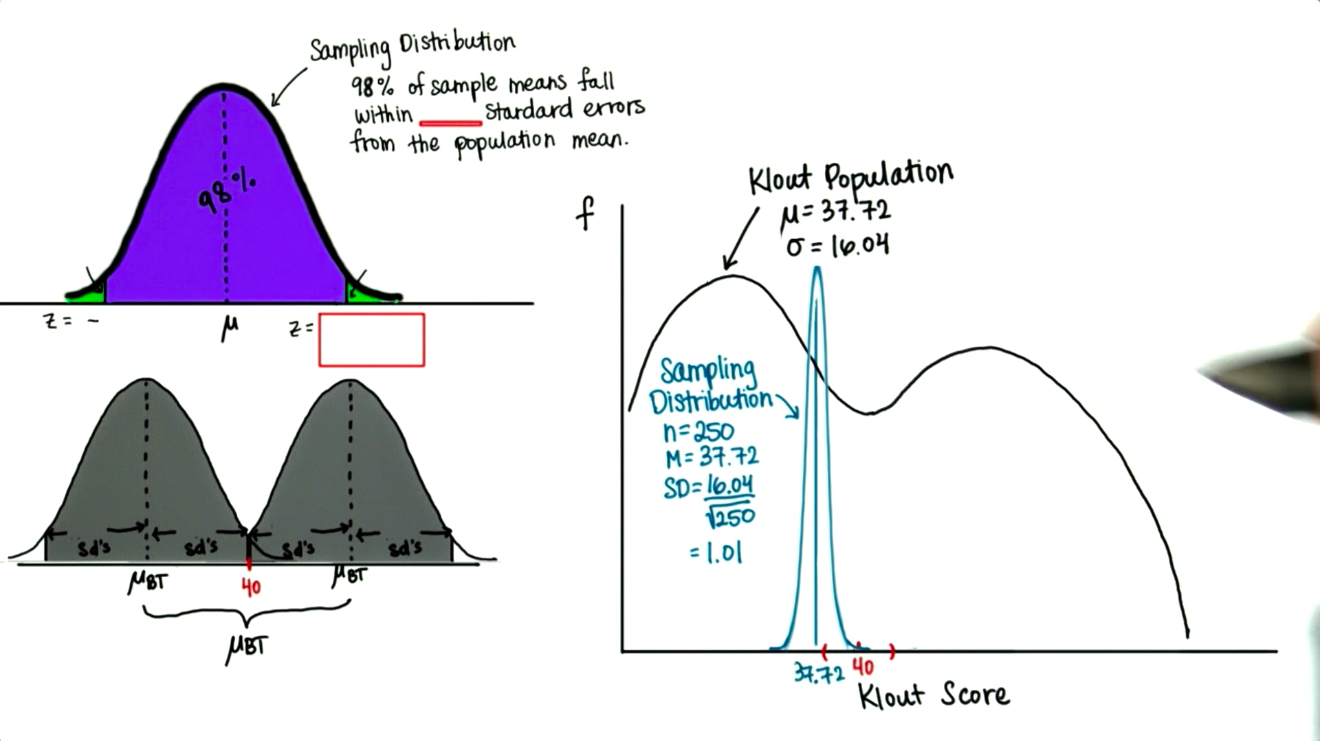 Sampling Distribution
98% of sample means fall
within ____ standard errors
from the population mean.
98%
z = -
μ
z =
sd's
sd's
sd's
sd's
μBT
40
μBT
μBT
Klout Population
μ = 37.72
σ = 16.04
f
Sampling
Distribution
n = 250
M = 37.72
SD = 16.04
√250
= 1.01
37.72
40
Klout Score